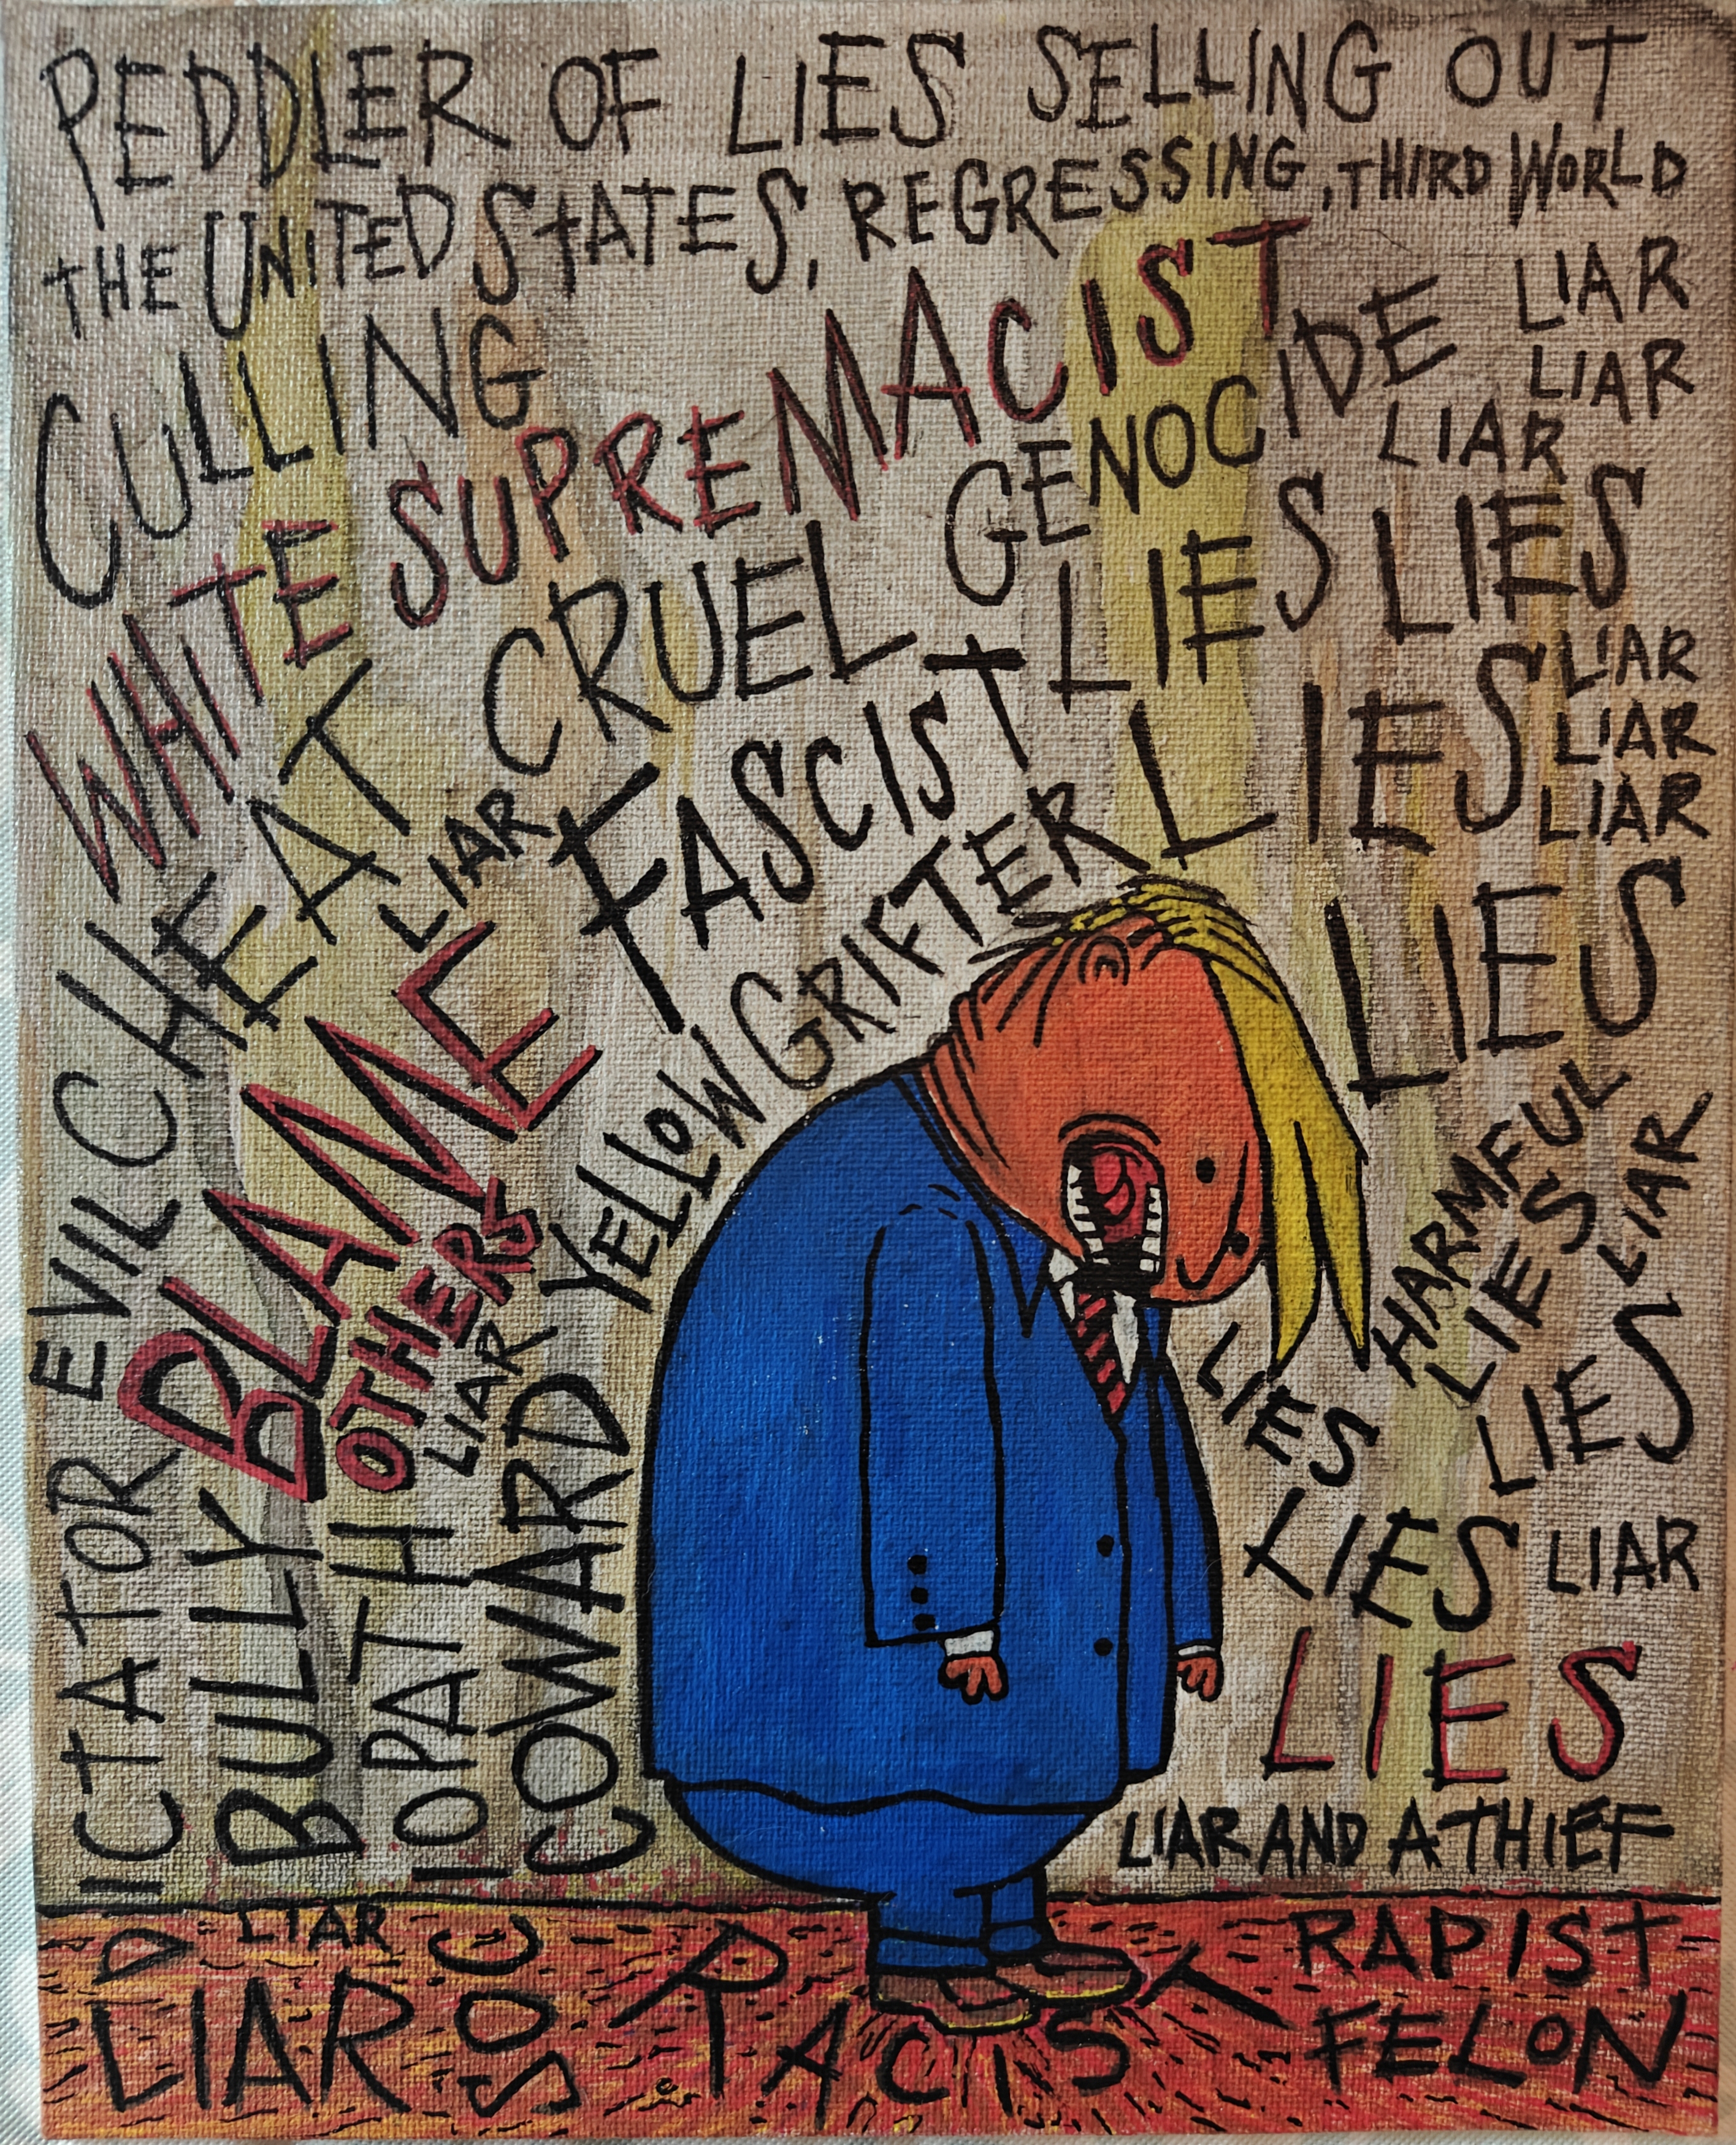 PEDDLER OF LIES SELLING OUT
THE UNITED STATES, REGRESSING, THIRD WORLD
CULLING
WHITE SUPREMACIST
LIAR
LIAR
LIAR
GENOCIDE
EVIL CHEAT
CRUEL
LIES LIES
LIAR
FASCIST
LIES
LIAR
LIAR
LIAR
BLAME
OTHERS
GRIFTER
LIES
YELLOW
COWARD
LIAR
HARMFUL
LIES
LIAR
LIES
LIES
LIES
LIAR
LIES
DICTATOR
BULLY
SOCIOPATH
LIAR AND A THIEF
LIAR
LIAR
RACIST
RAPIST
FELON